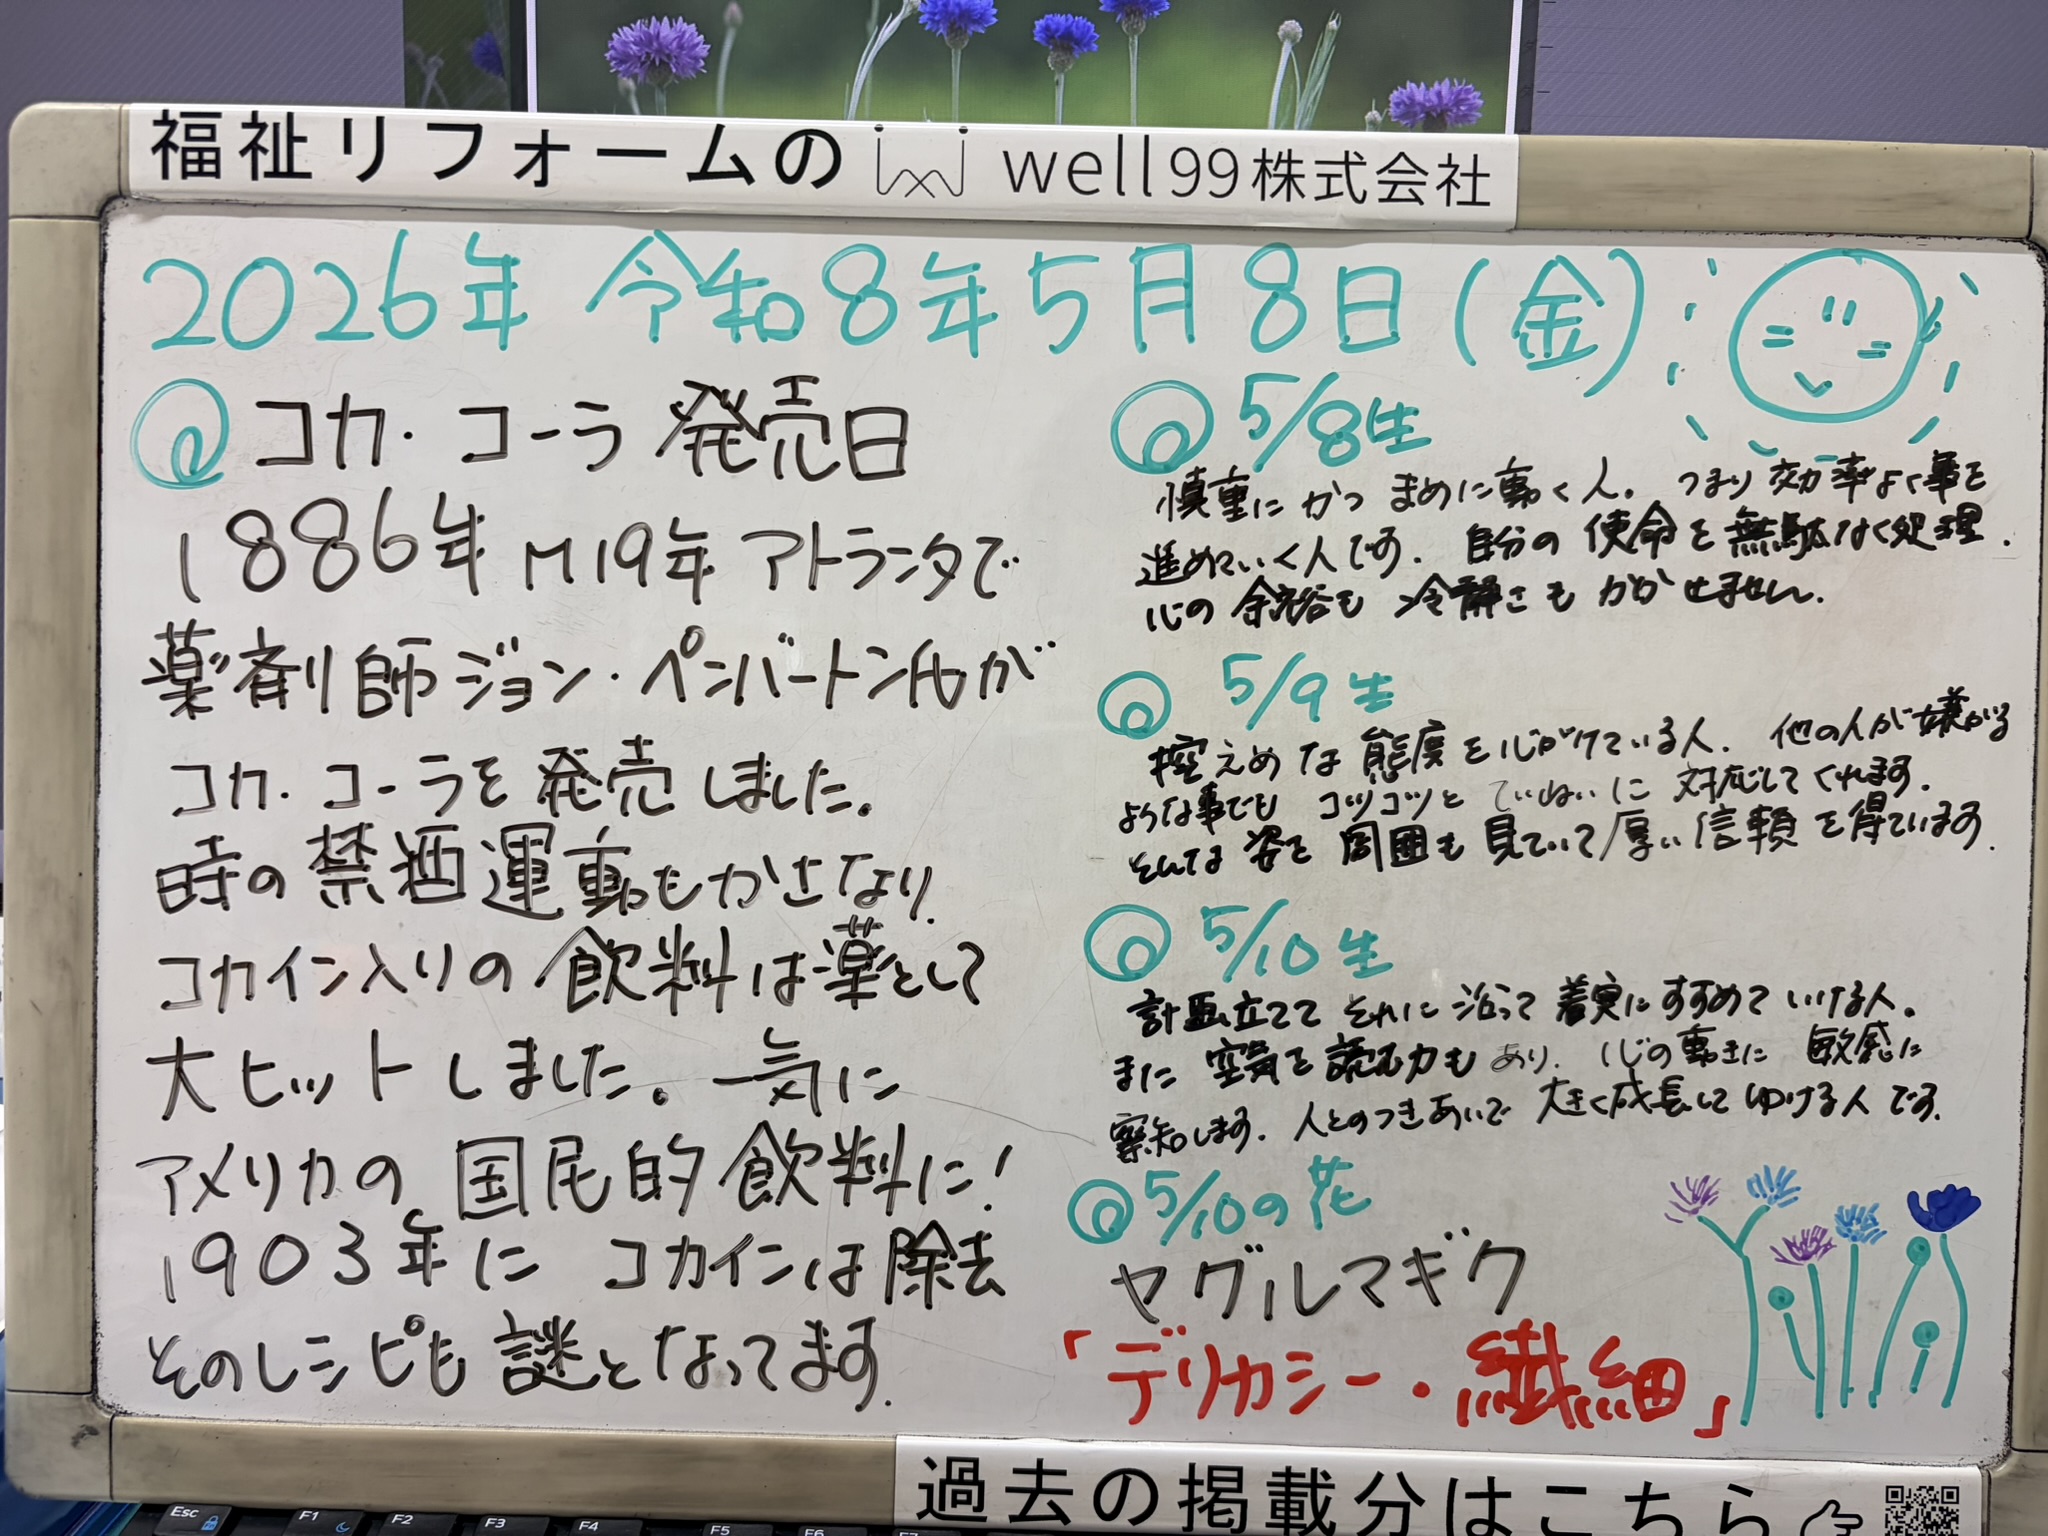 福祉リフォームの well99株式会社
2026年 令和8年5月8日(金)
コカ・コーラ発売日
1886年 M19年 アトランタで
薬剤師ジョン・ペンバートン氏が
コカ・コーラを発売しました。
時の禁酒運動もかさなり、
コカイン入りの飲料は薬として
大ヒットしました。一気に
アメリカの国民的飲料に!
1903年に コカインは除去
そのレシピも謎となってます。
5/8生
慎重にかつ まめに動く人。つまり効率よく事を
進めていく人です。自分の使命を無駄なく処理。
心の余裕も冷静さもかかせません。
5/9生
控えめな態度を心がけている人。他の人が嫌がる
ような事でもコツコツとていねいに対応してくれます。
そんな姿を周囲も見ていて厚い信頼を得ています。
5/10生
計画立てて それに沿って着実にすすめていける人。
また空気を読む力もあり、心の動きに敏感に
察知します。人とのつきあいで大きく成長してゆける人です。
5/10の花
ヤグルマギク
「デリカシー・繊細」
過去の掲載分はこちら
Esc F1 F2 F3 F4 F5 F6 F7